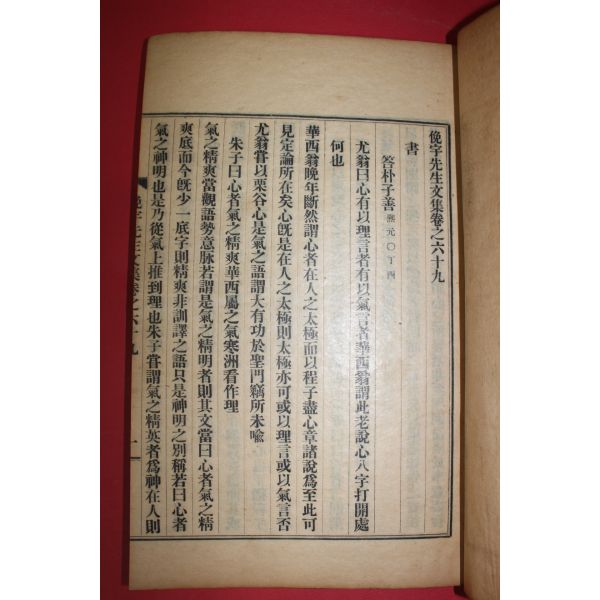 俛宇先生文集卷之六十九
書
答朴子善 熙元〇丁酉
尤翁曰心有以理言者有以氣言者華西翁謂此老說心八字打開處
何也
華西翁晩年斷然謂心者在人之太極而以程子盡心章諸說爲至此可
見定論所在矣心旣是在人之太極則太極亦可或以理言或以氣言否
尤翁嘗以栗谷心是氣之語謂大有功於聖門竊所未喩
朱子曰心者氣之精爽華西屬之氣寒洲看作理
氣之精爽當觀語勢意脉若謂是氣之精明者則其文當曰心者氣之精
爽底而今旣少一底字則精爽非訓譯之語只是神明之別稱若曰心者
氣之神明也是乃從氣上推到理也朱子嘗謂氣之精英者爲神在人則
俛宇先生文集卷之六十九
一